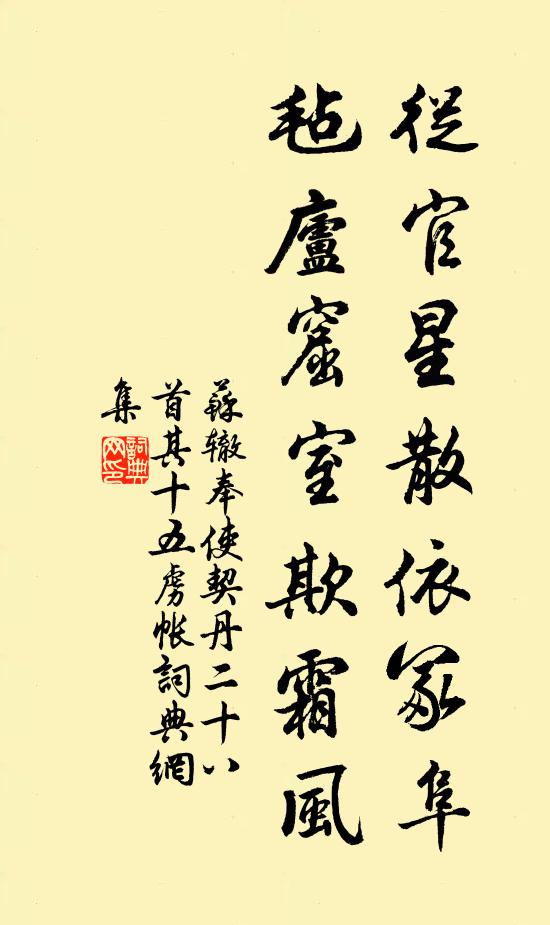 從官星散依冢阜
氈廬窟室欺霜風
蘇轍奉使契丹二十八
首其十五虜帳詞典網
集
詞典
网印